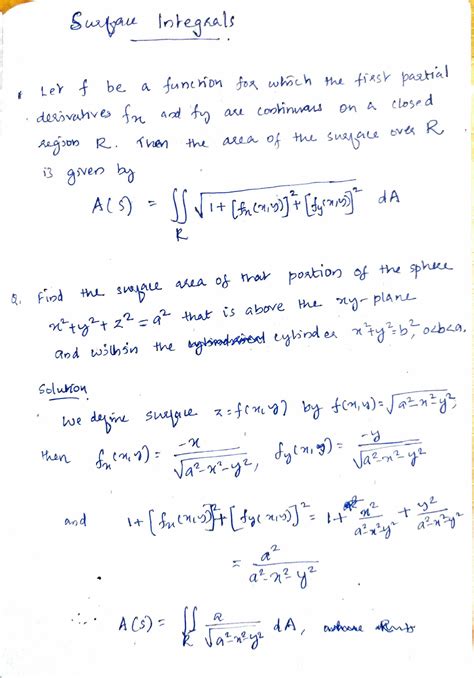 Surface Integrals
* Let f be a function for which the first partial
derivatives fx and fy are continuous on a closed
region R. Then the area of the surface over R
is given by
A(S) = ∬_R √(1+[fx(x,y)]²+[fy(x,y)]²) dA
Q. Find the surface area of that portion of the sphere
x²+y²+z²=a² that is above the xy-plane
and within the cylinder x²+y²=b², 0<b<a.
Solution
We define surface z=f(x,y) by f(x,y)=√(a²-x²-y²),
then fx(x,y) = -x/√(a²-x²-y²), fy(x,y) = -y/√(a²-x²-y²)
and 1+[fx(x,y)]²+[fy(x,y)]² = 1+ x²/(a²-x²-y²) + y²/(a²-x²-y²)
= a²/(a²-x²-y²)
∴ A(S) = ∬_R a/√(a²-x²-y²) dA, where